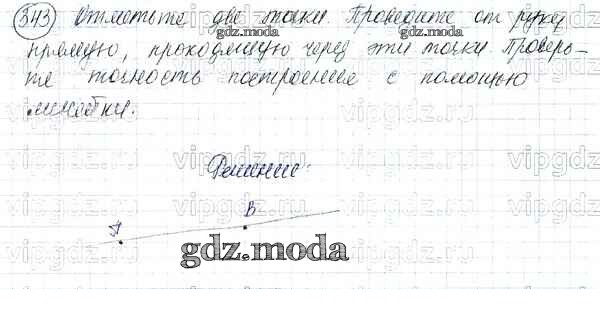 343 Отметьте две точки. Проведите от руки
прямую, проходящую через эти точки. Проверь-
те точность построения с помощью
линейки.
Решение:
A
B
gdz.moda
gdz.moda
gdz.moda
gdz.moda
vipgdz.ru vipgdz.ru vipgdz.ru vipgdz.ru
vipgdz.ru vipgdz.ru vipgdz.ru vipgdz.ru
vipgdz.ru vipgdz.ru vipgdz.ru vipgdz.ru
vipgdz.ru vipgdz.ru vipgdz.ru vipgdz.ru